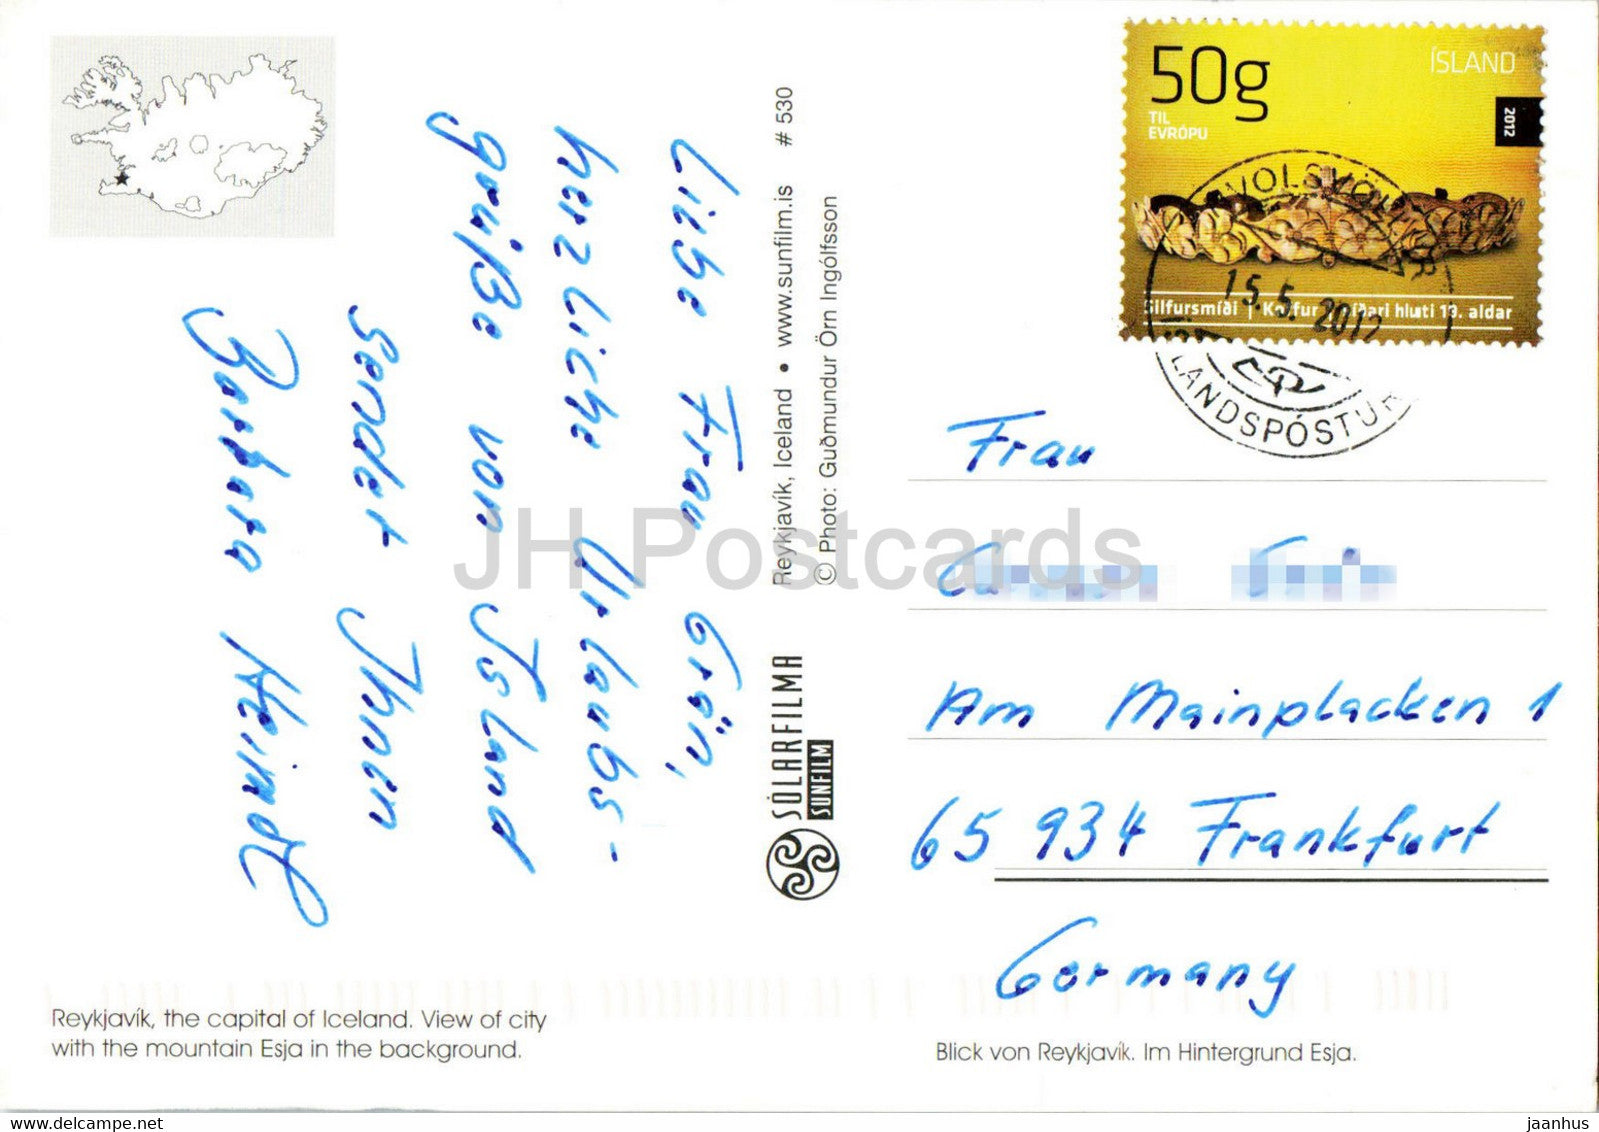 50g
TIL
EVRÓPU
ÍSLAND
2012
HVOLSVÖLLUR
15.5.2012
ÍSLANDSPÓSTUR
Silfursmíði | síðari hluti 19. aldar
Liebe Frau Grün,
herzliche Urlaubs-
grüße von Island
sendet Ihnen
Barbara Heindl
Reykjavík, Iceland • www.sunfilm.is # 530
© Photo: Guðmundur Örn Ingólfsson
SÓLARFILMA
SUNFILM
Frau
Am Mainplacken 1
65 934 Frankfurt
Germany
Reykjavík, the capital of Iceland. View of city
with the mountain Esja in the background.
Blick von Reykjavík. Im Hintergrund Esja.
JH Postcards
jaanhus